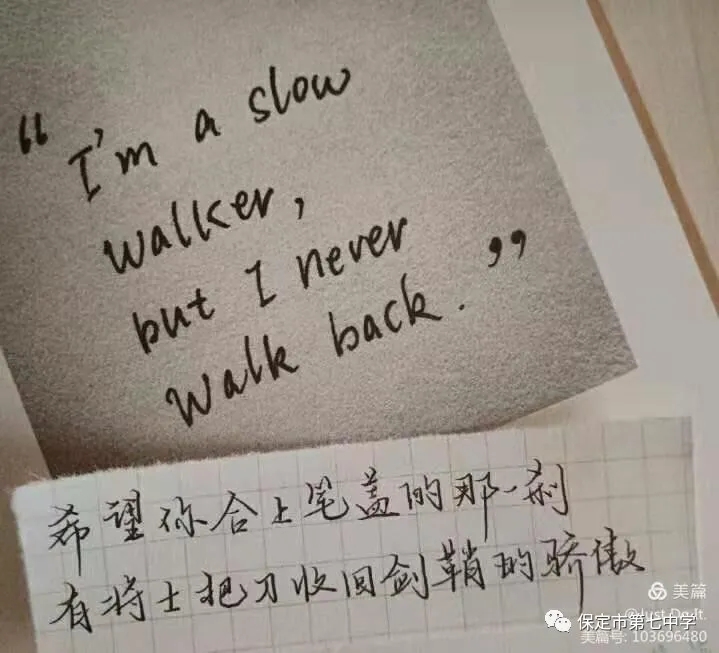 “I'm a slow
walker,
but I never
walk back.”
希望你合上笔盖的那一刹
有将士把刀收回剑鞘的骄傲
美篇
@Just Do It.
保定市第七中学
美篇号: 103696480